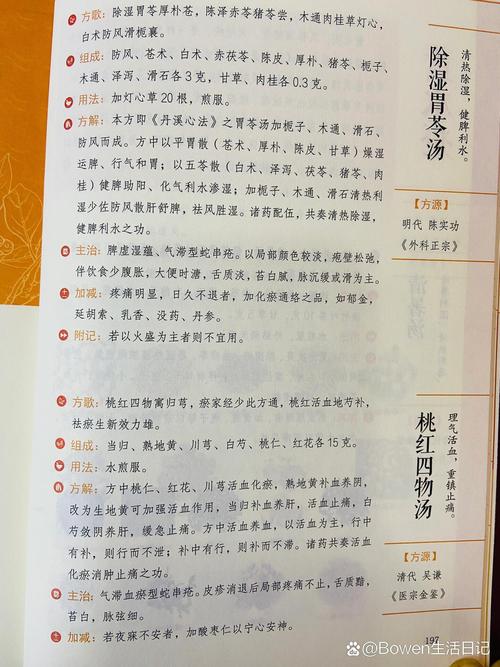 方歌：除湿胃苓厚朴苍，陈泽赤苓猪苓尝，木通肉桂草灯心，
白术防风滑栀襄。
组成：防风、苍术、白术、赤茯苓、陈皮、厚朴、猪苓、栀子、
木通、泽泻、滑石各3克，甘草、肉桂各0.3克。
用法：加灯心草20根，煎服。
方解：本方即《丹溪心法》之胃苓汤加栀子、木通、滑石、
防风而成。方中以平胃散（苍术、厚朴、陈皮、甘草）燥湿
运脾、行气和胃；以五苓散（白术、泽泻、茯苓、猪苓、肉
桂）健脾助阳、化气利水渗湿；加栀子、木通、滑石清热利
湿少佐防风散肝舒脾，祛风胜湿。诸药配伍，共奏清热除湿，
健脾利水之功。
主治：脾虚湿蕴、气滞型蛇串疮。以局部颜色较淡，疱壁松弛，
伴饮食少腹胀，大便时溏，舌质淡，苔白腻，脉沉缓或滑为主。
加减：疼痛明显，日久不退者，加化瘀通络之品，如郁金，
延胡索、乳香、没药、丹参。
附记：若以火盛为主者则不宜用。
除湿胃苓汤
清热除湿，健脾利水。
【方源】
明代 陈实功
《外科正宗》
方歌：桃红四物寓归芎，瘀家经少此方通，桃红活血地芍补，
祛瘀生新效力雄。
组成：当归、熟地黄、川芎、白芍、桃仁、红花各15克。
用法：水煎服。
方解：方中桃仁、红花、川芎活血化瘀，熟地黄补血养阴，
改为生地黄可加强活血作用，当归补血养肝，活血止痛，白
芍敛阴养肝，缓急止痛。方中活血养血，以活血为主，行中
有补，则行而不泄；补中有行，则补而不滞。诸药共奏活血
化瘀消肿止痛之功。
主治：气滞血瘀型蛇串疮。皮疹消退后局部疼痛不止，舌质黯，
苔白，脉弦细。
加减：若夜寐不安者，加酸枣仁以宁心安神。
桃红四物汤
理气活血，重镇止痛。
【方源】
清代 吴谦
《医宗金鉴》
197
@Bowen生活日记